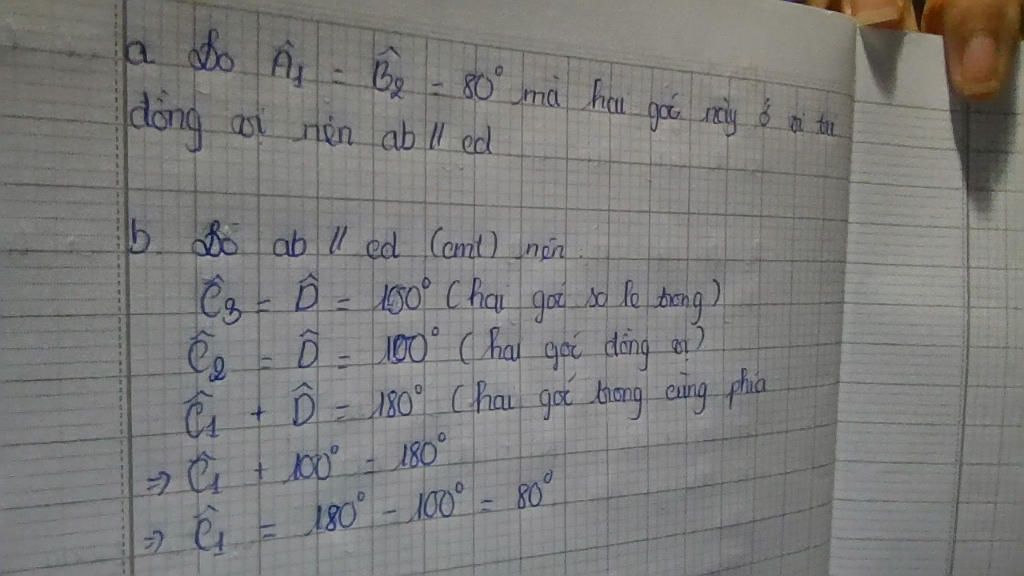 a Do Â₁ = B̂₂ = 80° mà hai góc này ở vị trí
đồng vị nên ab // cd
b Do ab // cd (cmt) nên.
Ĉ₃ = D̂ = 100° (hai góc so le trong)
Ĉ₂ = D̂ = 100° (hai góc đồng vị)
Ĉ₁ + D̂ = 180° (hai góc trong cùng phía
⇒ Ĉ₁ + 100° = 180°
⇒ Ĉ₁ = 180° - 100° = 80°